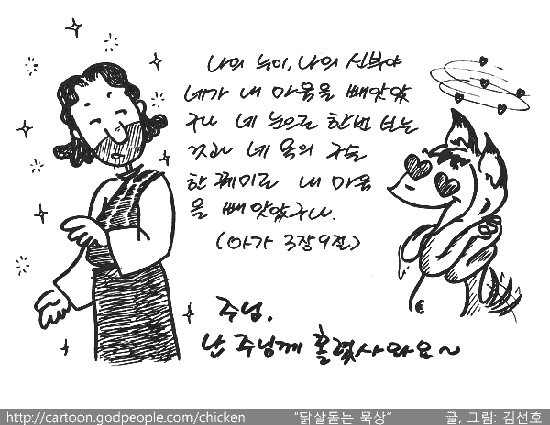 나의 누이, 나의 신부야
네가 내 마음을 빼앗았
구나 네 눈으로 한번 보는
것과 네 목의 구슬
한 꿰미로 내 마음
을 빼앗았구나.
(아가 4장 9절)
주님,
난 주님께 홀렸사와요~
http://cartoon.godpeople.com/chicken "닭살돋는 묵상" 글, 그림: 김선호